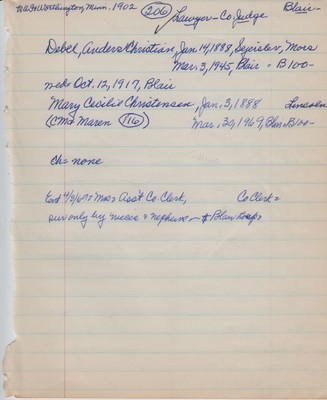 Worthington, Minn. 1902 (206) Lawyer - Co. Judge Blair -
Debel, Anders Christian, Jan. 14, 1888, Sejerslev, Mors
Mar. 3, 1945, Blair = B100-
md= Oct. 12, 1917, Blair
Mary Cecilie Christensen, Jan. 3, 1888 Lincoln
(CMd Maren (116)) Mar. 30, 1969, Blair = B100-
Ch = none
Mar Ass't Co. Clerk, Co Clerk =
surv only by nieces & nephews - Blair